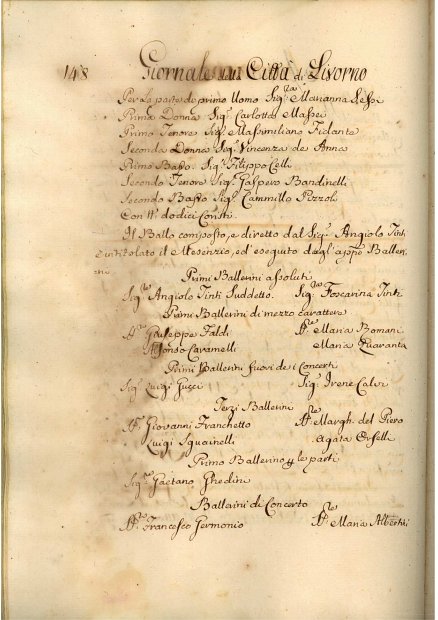 148 Giornale della Città di Livorno
Per La parte de primo Uomo Sig.ra Marianna Sessi
Prima Donna Sig.ra Carlotta Massei
Primo Tenore Sig.r Massimiliano Fidante
Seconda Donna Sig.ra Vincenza de Anna
Primo Basso Sig.r Filippo Celli
Secondo Tenore Sig.r Gaspero Bandinelli
Secondo Basso Sig.r Cammillo Pozzoli
Con N. dodici Coristi
Il Ballo composto, e diretto dal Sig.r Angiolo Tinti
intitolato il Mesenzio, ed' eseguito dagl'appo Balleri
ni
Primi Ballerini assoluti
Sig.re Angiolo Tinti Suddetto. Sig.ra Foscarina Tinti
Primi Ballerini di mezzo carattere
Giuseppe Faldi Maria Bonani
Alfonso Caramelli Maria Quaranta
Primi Ballerini fuori de i concerti
Sig.re Luigi Gucci Sig.ra Irene Calvi
Terzi Ballerini
Giovanni Franchetto Margh. del Piero
Luigi Squainelli Agata Orselli
Primo Ballerino le parti
Sig.re Gaetano Ghedini
Ballarini di Concerto
Francesco Germonio Maria Albertini